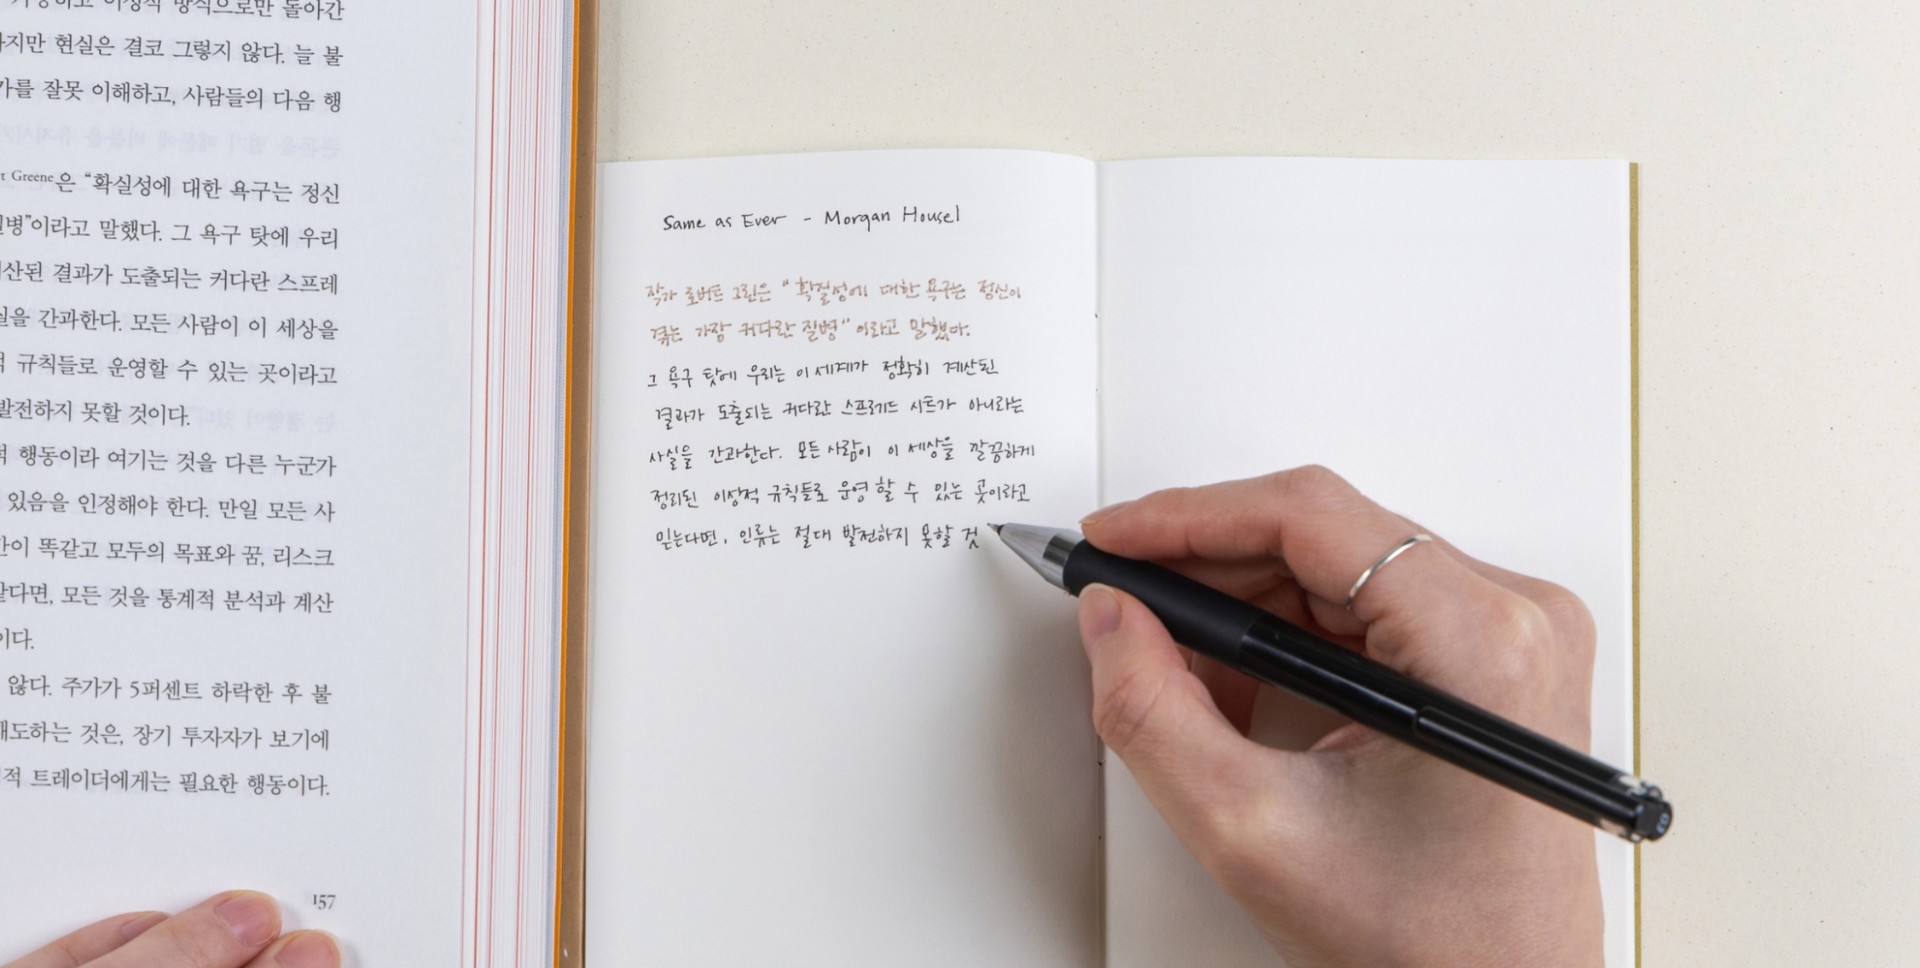 하지만 현실은 결코 그렇지 않다. 늘 불
가를 잘못 이해하고, 사람들의 다음 행
t Greene은 “확실성에 대한 욕구는 정신
질병”이라고 말했다. 그 욕구 탓에 우리
계산된 결과가 도출되는 커다란 스프레
실을 간과한다. 모든 사람이 이 세상을
적 규칙들로 운영할 수 있는 곳이라고
발전하지 못할 것이다.
적 행동이라 여기는 것을 다른 누군가
있음을 인정해야 한다. 만일 모든 사
간이 똑같고 모두의 목표와 꿈, 리스크
같다면, 모든 것을 통계적 분석과 계산
이다.
않다. 주가가 5퍼센트 하락한 후 불
매도하는 것은, 장기 투자자가 보기에
적 트레이더에게는 필요한 행동이다.
157
Same as Ever - Morgan Housel
작가 로버트 그린은 “확실성에 대한 욕구는 정신이
겪는 가장 커다란 질병”이라고 말했다.
그 욕구 탓에 우리는 이 세계가 정확히 계산된
결과가 도출되는 커다란 스프레드 시트가 아니라는
사실을 간과한다. 모든 사람이 이 세상을 깔끔하게
정리된 이상적 규칙들로 운영 할 수 있는 곳이라고
믿는다면, 인류는 절대 발전하지 못할 것